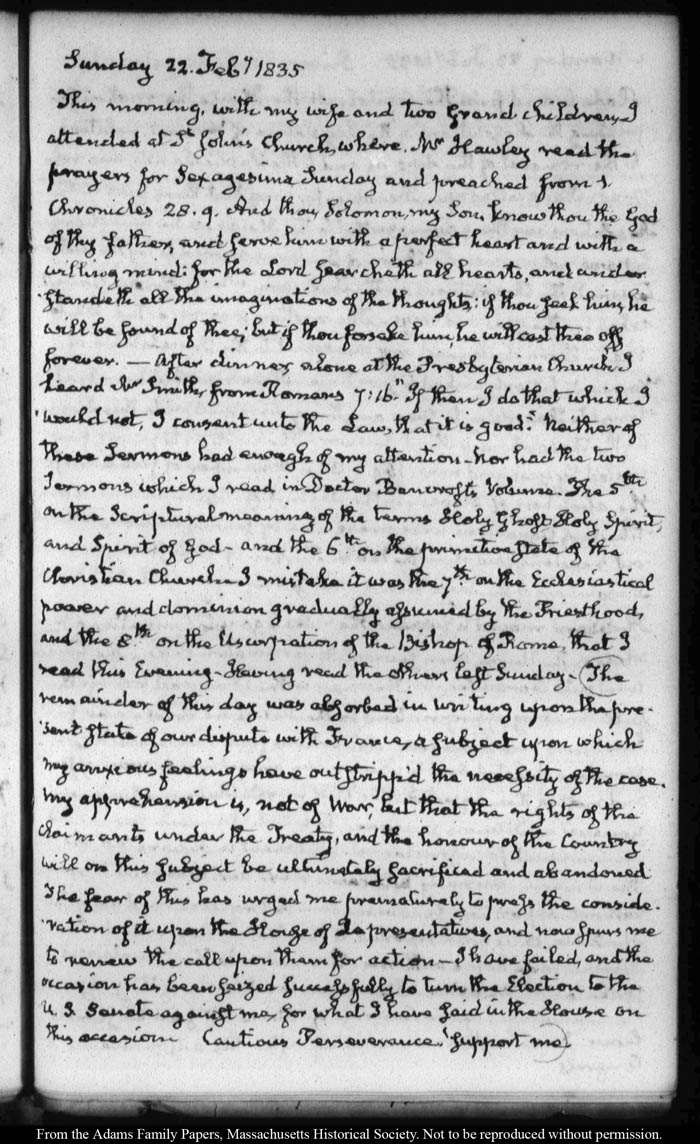 Sunday 22. Feby 1835
This morning, with my wife and two Grand children, I
attended at St. John's Church, where Mr Hawley read the
prayers for Sexagesima Sunday and preached from 1.
Chronicles 28. 9. And thou, Solomon, my Son, know thou the God
of thy father, and serve him with a perfect heart and with a
willing mind: for the Lord searcheth all hearts, and under-
standeth all the imaginations of the thoughts: if thou seek him, he
will be found of thee; but if thou forsake him, he will cast thee off
forever. — After dinner, alone at the Presbyterian Church, I
heard Mr Smith, from Romans 7:16. "If then I do that which I
would not, I consent unto the Law, that it is good." Neither of
these Sermons had enough of my attention. Nor had the two
Sermons which I read in Doctor Bancroft's Volume. The 5th
on the Scriptural meaning of the terms Holy Ghost, Holy Spirit,
and Spirit of God – and the 6th on the primitive state of the
Christian Church. I mistake it was the 7th on the Ecclesiastical
power and dominion gradually assumed by the Priesthood,
and the 8th on the Usurpation of the Bishop of Rome, that I
read this Evening – Having read the others last Sunday – The
remainder of this day was absorbed in writing upon the pre-
sent state of our dispute with France, a subject upon which
my anxious feelings have outstripp'd the necessity of the case.
My apprehension is, not of War, but that the rights of the
claimants under the Treaty, and the honour of the Country
will on this subject be ultimately sacrificed and abandoned
The fear of this has urged me prematurely to press the conside-
ration of it upon the House of Representatives, and now spurs me
to renew the call upon them for action – I have failed, and the
occasion has been seized successfully to turn the Election to the
U. S. Senate against me, for what I have said in the House on
this occasion Cautious Perseverance, support me.
From the Adams Family Papers, Massachusetts Historical Society. Not to be reproduced without permission.